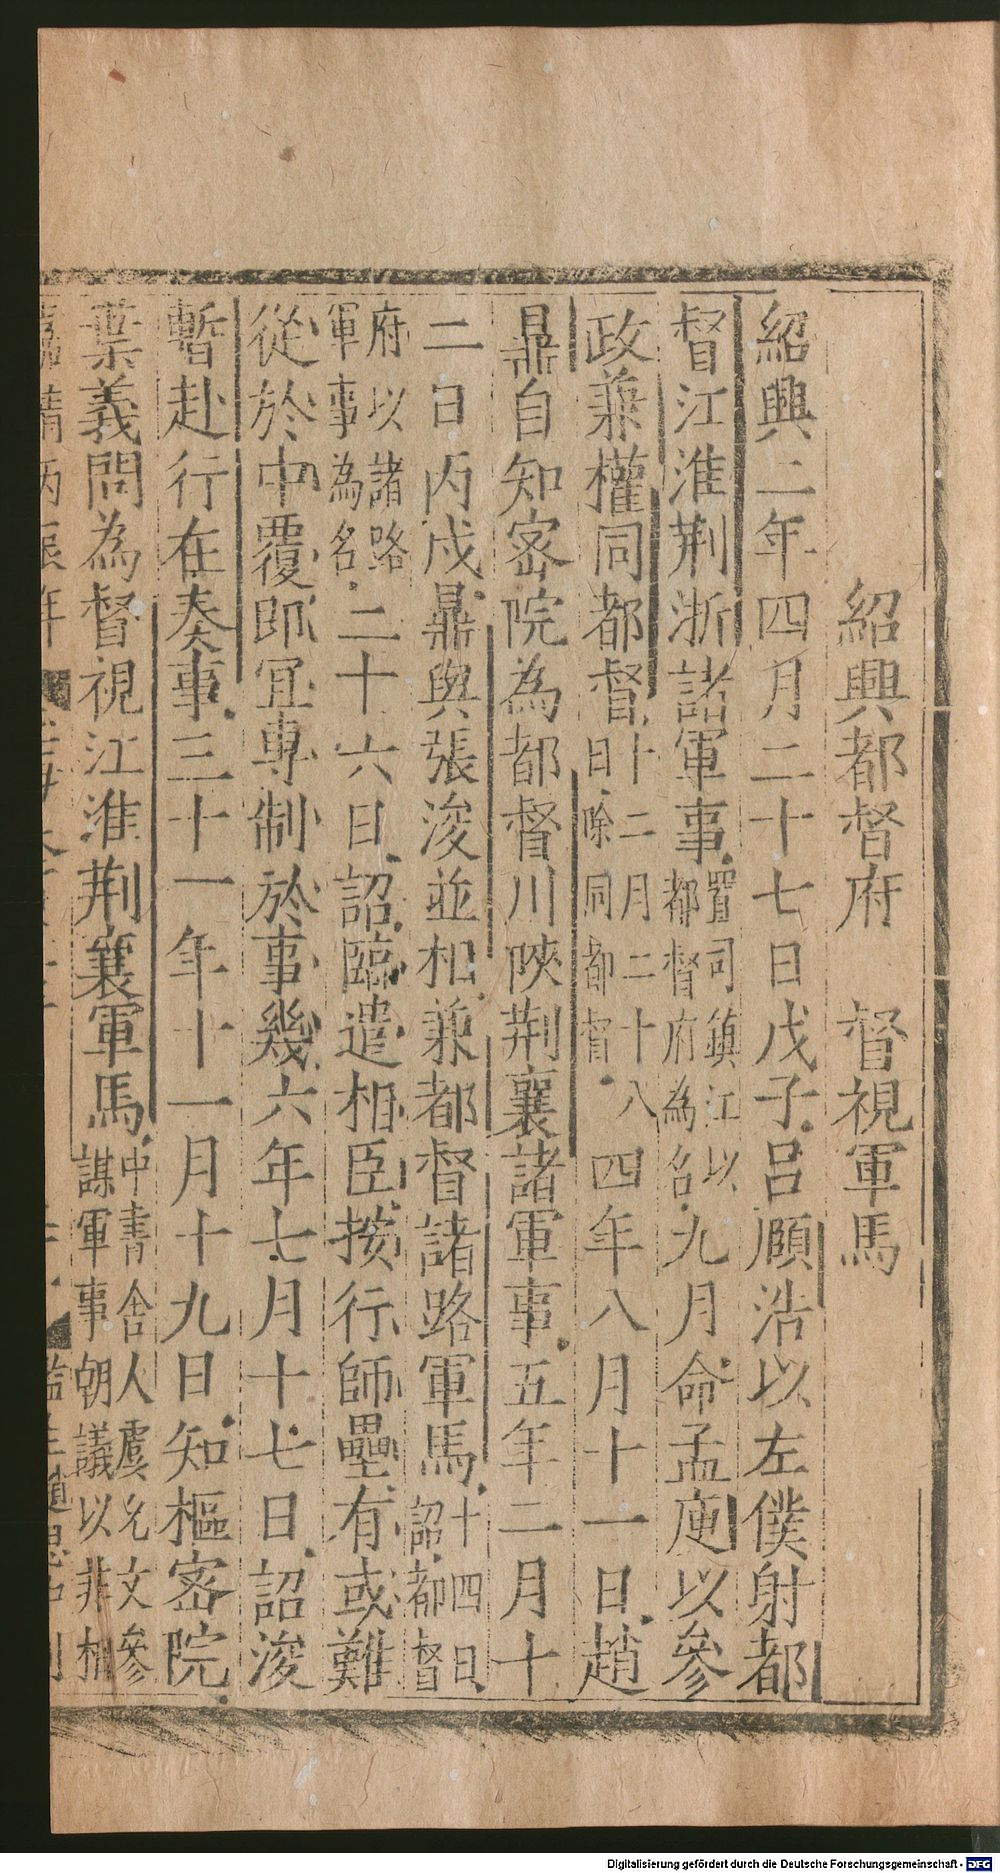 紹興都督府　督視軍馬
紹興二年四月二十七日戊子呂頤浩以左僕射都
督江淮荆浙諸軍事置司鎮江以都督府為名九月命孟庾以參
政兼權同都督十二月二十八日除同都督四年八月十一日趙
鼎自知密院為都督川陜荆襄諸軍事五年二月十
二日丙戌鼎與張浚並相兼都督諸路軍馬十四日詔都督
府以諸路軍事為名二十六日詔臨遣相臣按行師壘有或難
從於中覆即宜專制於事幾六年七月十七日詔浚
暫赴行在奏事三十一年十一月十九日知樞密院
葉義問為督視江淮荆襄軍馬中書舍人虞允文參謀軍事朝議以非相
Digitalisierung gefördert durch die Deutsche Forschungsgemeinschaft - DFG